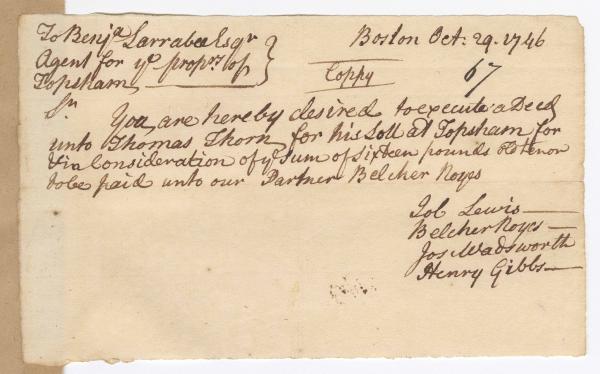 To Benjᵃ Larrabee Esqr
Agent for yᵉ proprs of
Topsham
Boston Oct: 29. 1746
Coppy
67
Sr.
You are hereby desired to execute a Deed
unto Thomas Thorn for his Lott at Topsham for
Consideration of yᵉ Sum of Sixteen pounds old tenor
to be paid unto our Partner Belcher Noyes
Job Lewis
Belcher Noyes
Jos Wadsworth
Henry Gibbs